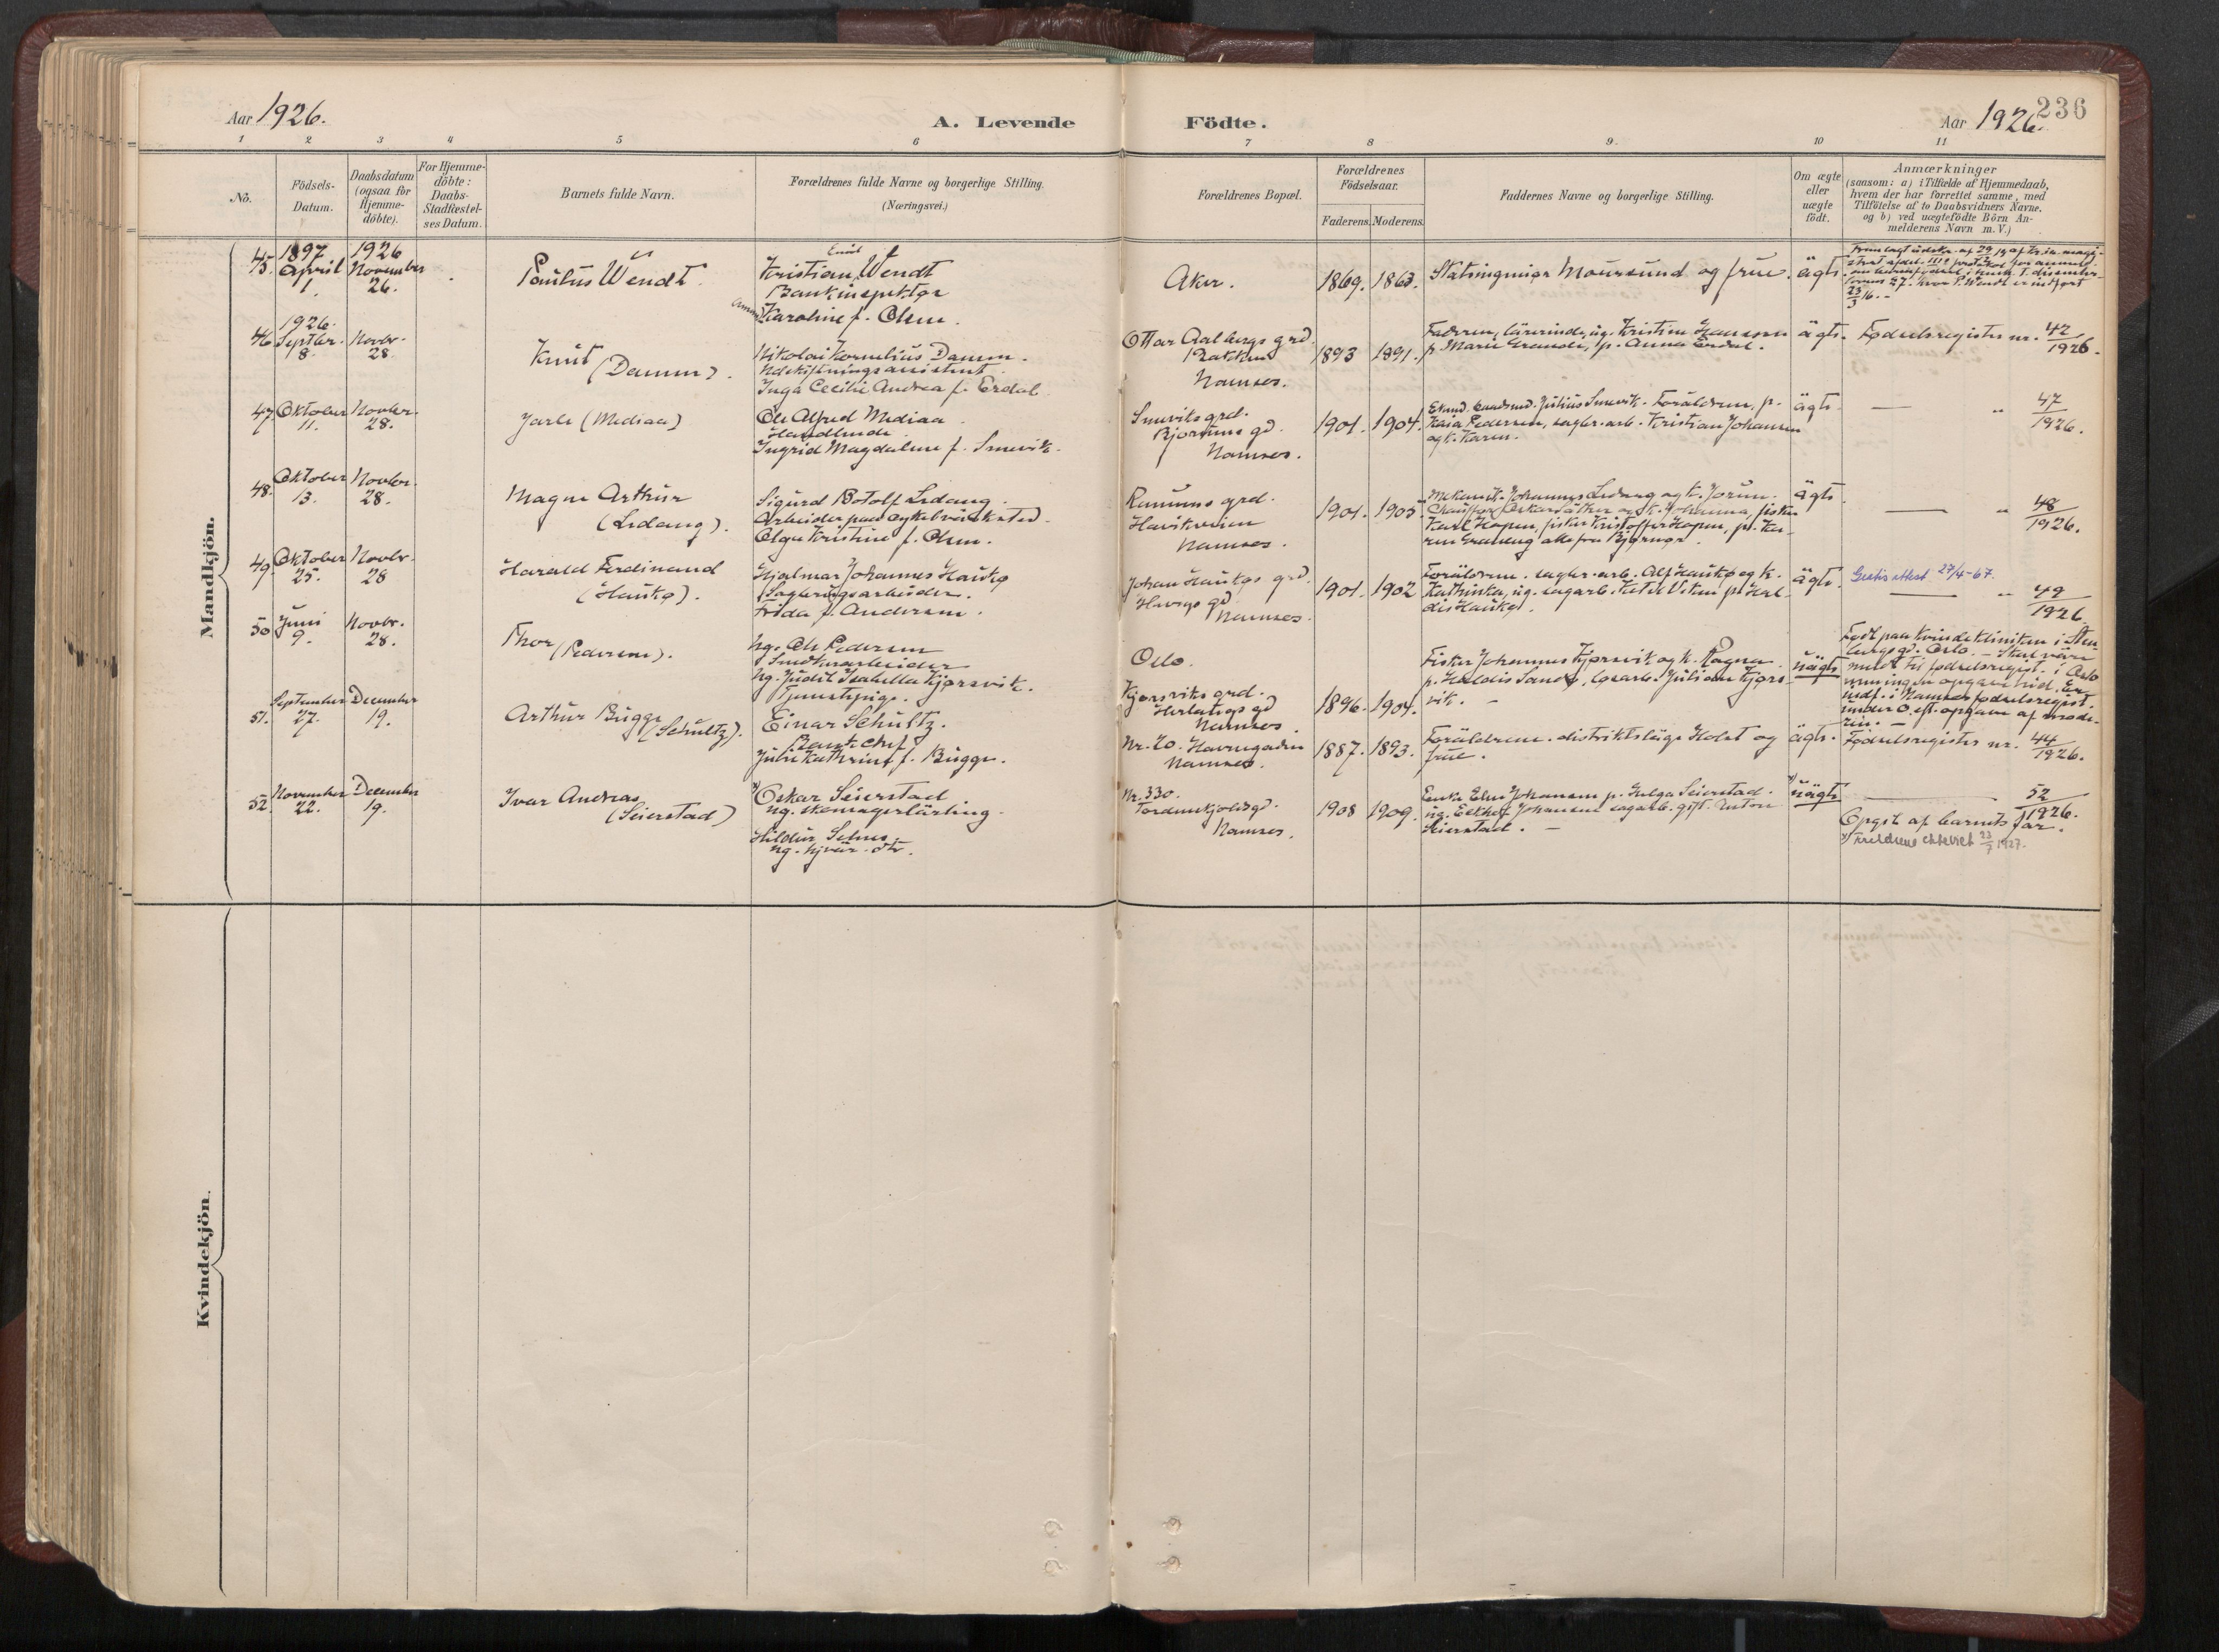 Aar 1926.
A. Levende Födte.
Aar 1926.
236
1 2 3 4 5 6 7 8 9. 10 11
No.
Födsels-
Datum.
Daabsdatum
(ogsaa for
Hjemme-
döbte).
For Hjemme-
döbte:
Daabs-
Stadfæstel-
ses Datum.
Barnets fulde Navn.
Forældrenes fulde Navne og borgerlige Stilling.
(Næringsvei.)
Forældrenes Bopæl.
Forældrenes
Födselsaar.
Faderens. Moderens.
Faddernes Navne og borgerlige Stilling.
Om ægte
eller
uægte
födt.
Anmærkninger
(saasom: a) i Tilfælde af Hjemmedaab,
hvem der har forrettet samme, med
Tilföielse af to Daabsvidners Navne.
og b) ved uægtefödte Börn An-
melderens Navn m. V.)
Mandkjön.
45
1897
April
1.
1926
November
26.
Paulus Wendt.
Emil
Kristian Wendt
Bankinspektør
Karoline f. Olsen.
Aker.
1869. 1863.
Statsingeniør Moursund og frue.
ägte.
46
1926.
Septbr.
8.
Novbr.
28.
Knut
(Damm).
Nikolai Kornelius Damm.
Udskiftningsassistent.
Inga Cecilie Andrea f. Erdal
Ottar Aalbergs grd.
Bakken
Namsos.
1893 1891.
Faderen, lärerinde, ug. Kristine Hansen
p. Marie Grande, p. Anna Erdal.
ägte. Fødselsregister nr. 42/1926.
47
Oktober
11.
Novbr.
28.
Jarle (Mediaa)
Ole Alfred Mediaa.
Handlende.
Ingrid Magdalene f. Smevik.
Smeviks grd.
Bjørums gd.
Namsos.
1901. 1904.
Julius Smevik. Forældrene, p.
Kaia Pedersen, sagbr.arb. Kristian Johansen
og k. Karen.
ägte. — " 47/1926.
48.
Oktober
13.
Novbr.
28.
Magne Arthur
(Lidang).
Sigurd Botolf Lidang.
Arbeider paa cykelværksted.
Olga Kristine f. Olsen.
grd.
Havikveien
Namsos.
1901. 1905.
Mekanik. Johannes Lidang og k. Jorun.
Chauffør Oskar og k. Johanna, fisker
Karl Hopen, fisker Kristoffer Hopen, p. Ka-
ren alle fra Bjørnør.
ägte. — " 48/1926.
49.
Oktober
25.
Novbr.
28
Harald Ferdinand
(Haukø).
Hjalmar Johannes Haukø
Sagbrugsarbeider.
Frida f. Andersen.
Johan Haukøs grd.
Havigs gd.
Namsos.
1901. 1902
Forældrene. sagbr.arb. Alf Haukø og k.
Kathinka, ug. sagarb. Ketil Vikem p. Hal-
dis Haukø.
ägte. Gratis attest 27/4-67.
— " 49/1926.
50
Juni
9.
Novbr.
28.
Thor
(Pedersen).
Ug. Ole Pedersen
Smedkarbeider
Ug. Judit Isabella Kjørsvik.
Tjenestepige.
Oslo.
Kjørsviks grd.
Herlaugs gd
Namsos.
1896. 1904.
Fisker Johannes Kjørsvik og k. Ragna.
p. Haldis Sand, løsarb. Julian Kjørs-
vik. –
uägte
Født paa Kvindekliniken i Sten-
bergs gd. Oslo. – Skal være
meldt til fødselsregist. i Oslo
51.
September
27.
December
19.
Arthur Bugge
(Schultz).
Einar Schultz.
Bankchef
Julie Kathrine f. Bugge.
Nr. 20. Havnegaden
Namsos.
1887. 1893.
Forældrene. distriktslæge Holst og
frue.
ägte. Fødselsregister nr. 44/1926.
52.
November
22.
December
19.
Ivar Andreas
(Seierstad)
x) Oskar Seierstad
ug. skomagerlärling.
Hildur Selnes.
ug. hjvær. dtr.
Nr. 330.
Tordenskjoldsgd.
Namsos.
1908 1909.
Enke Elen Johansen p. Helga Seierstad.
ug. Johansen sagarb. gift. Anton
Seierstad. –
x) uägte — 52/1926.
Opgit af barnets far.
x) Foreldrene ektevied 23/7 1927.
Kvindekjön.